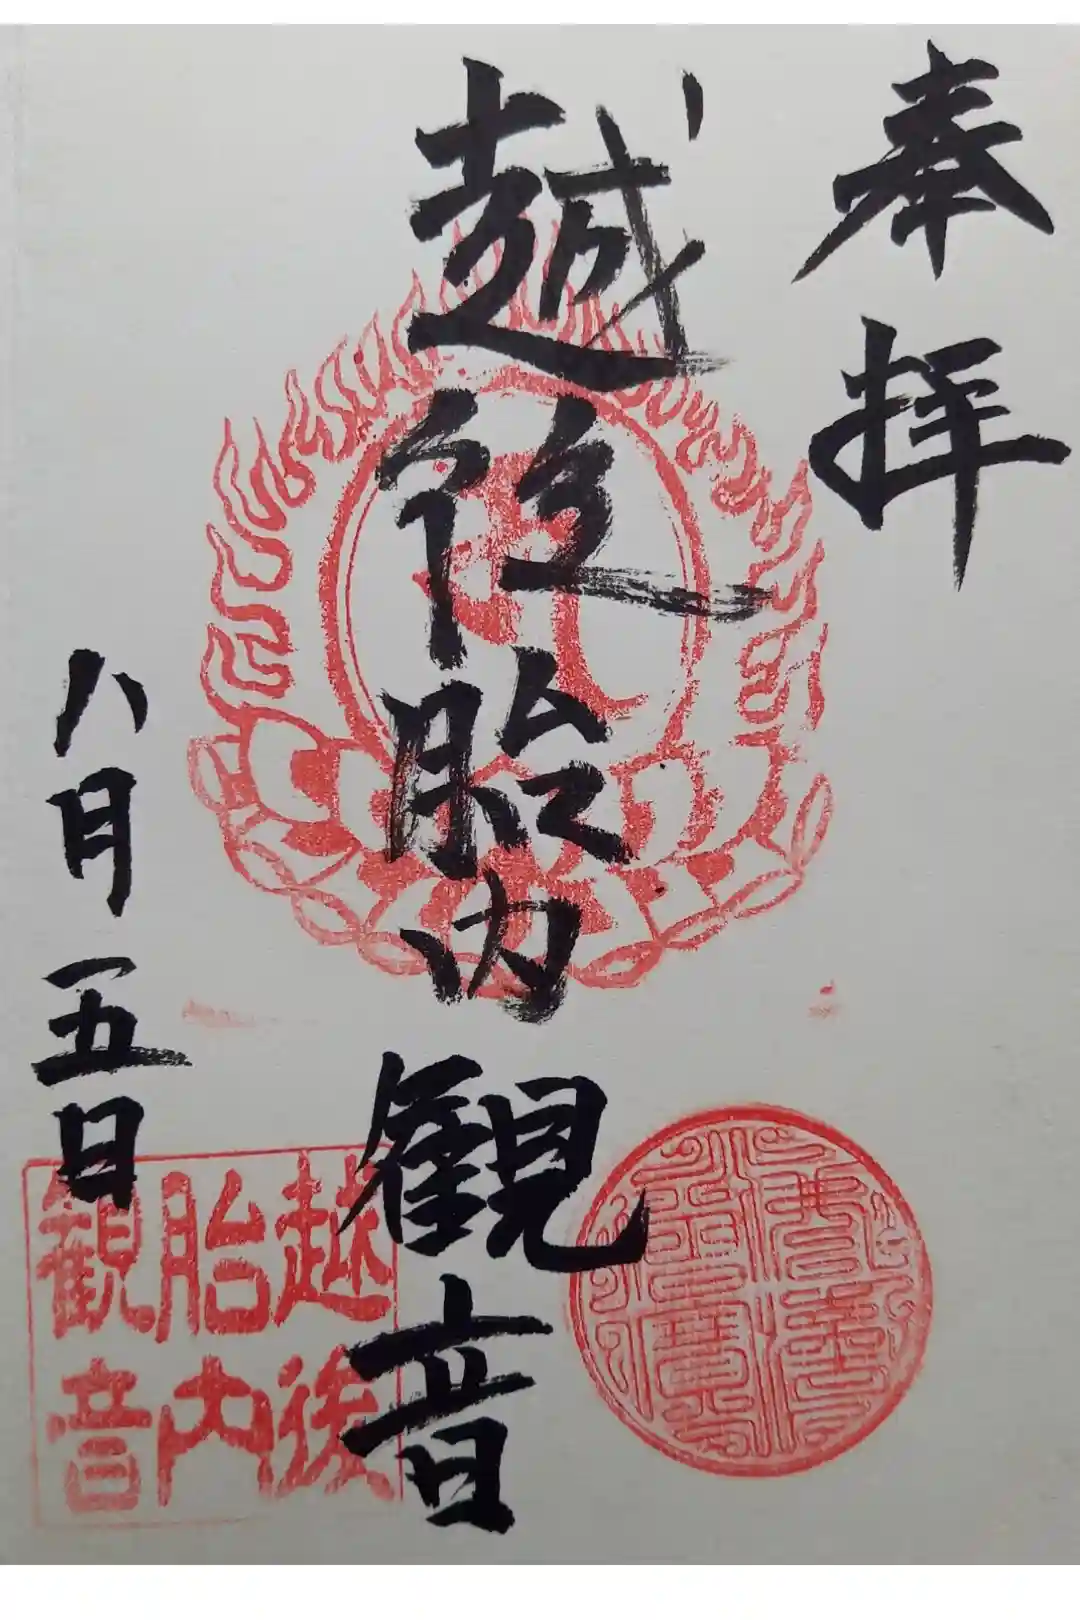 奉拝
越後胎内観音
八月五日
越後
胎内
観音